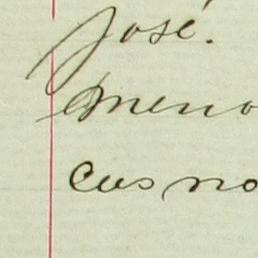 José.
meno
cus no